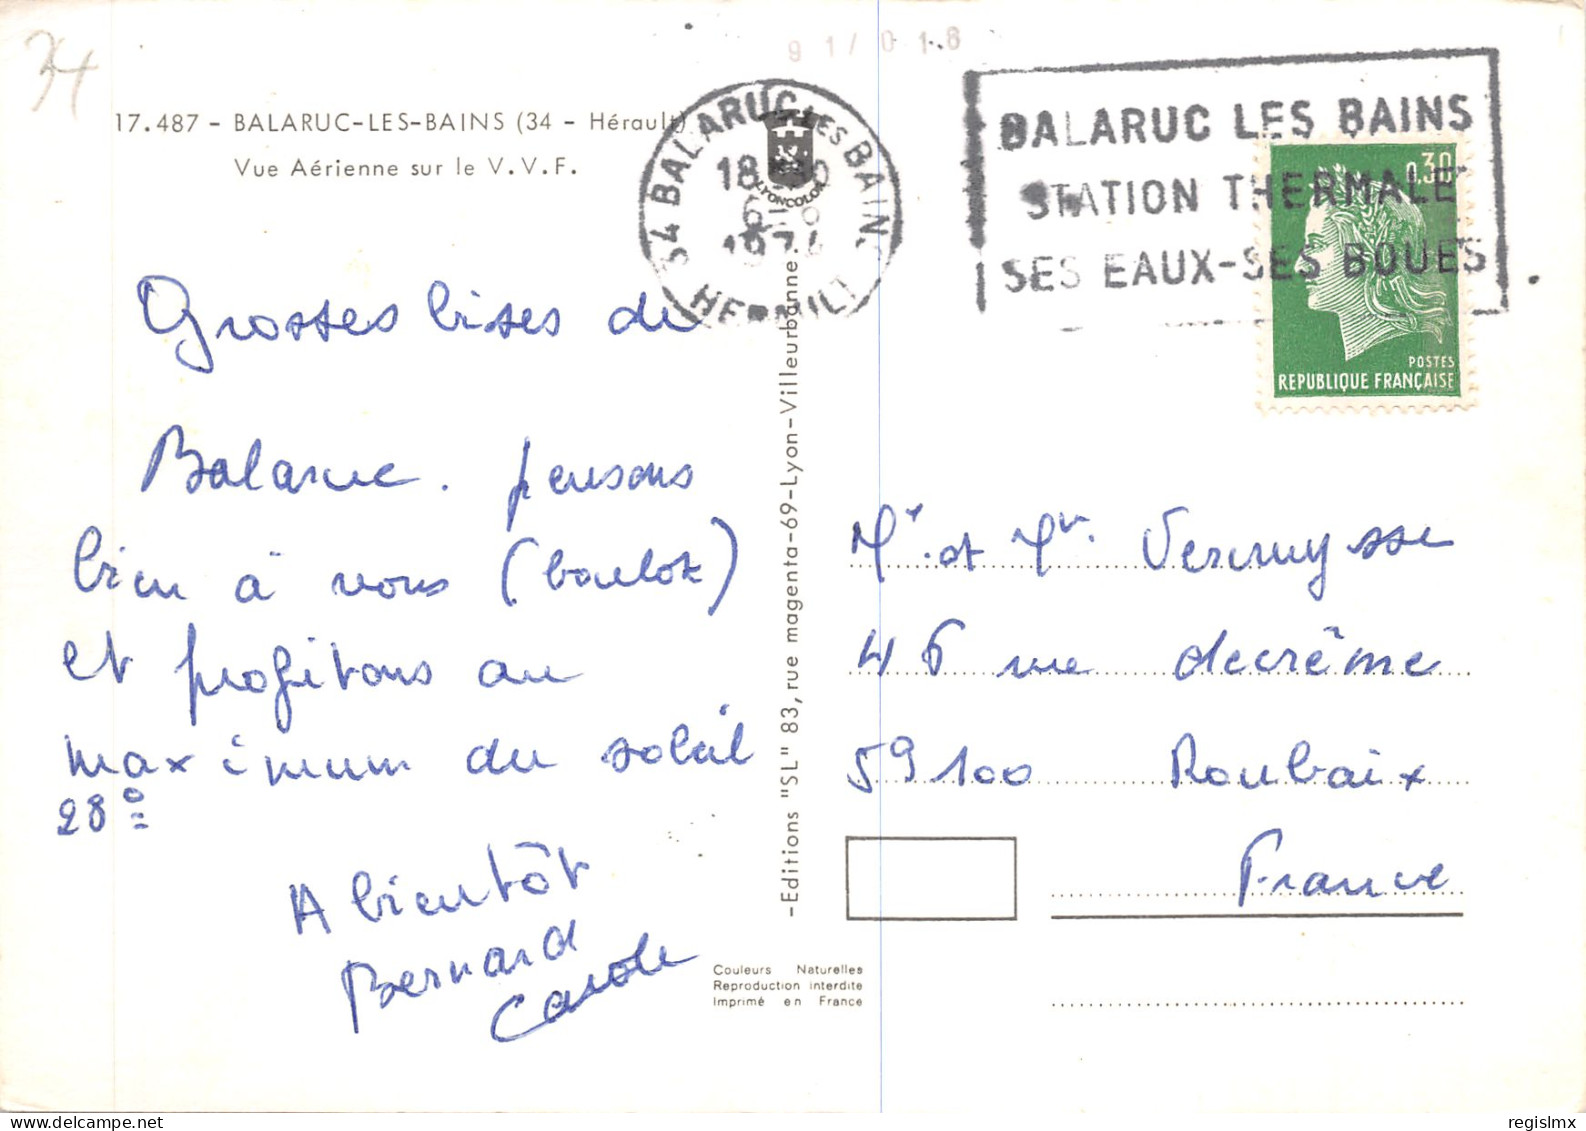 34
91/018
17.487 - BALARUC-LES-BAINS (34 - Hérault)
Vue Aérienne sur le V.V.F.
34 BALARUC LES BAINS
18
6
HERAULT
LYONCOLOR
BALARUC LES BAINS
STATION THERMALE
SES EAUX-SES BOUES
0,30
POSTES
REPUBLIQUE FRANÇAISE
Grosses bises de
Balaruc. pensons
bien à vous (boulot)
et profitons au
maximum du soleil
28°
A bientôt
Bernard
Carole
-Editions "SL" 83, rue magenta-69-Lyon-Villeurbanne-
Couleurs Naturelles
Reproduction interdite
Imprimé en France
Mr et Mr. Vermuysse
46 rue decrême
59100 Roubaix
France
regisImx